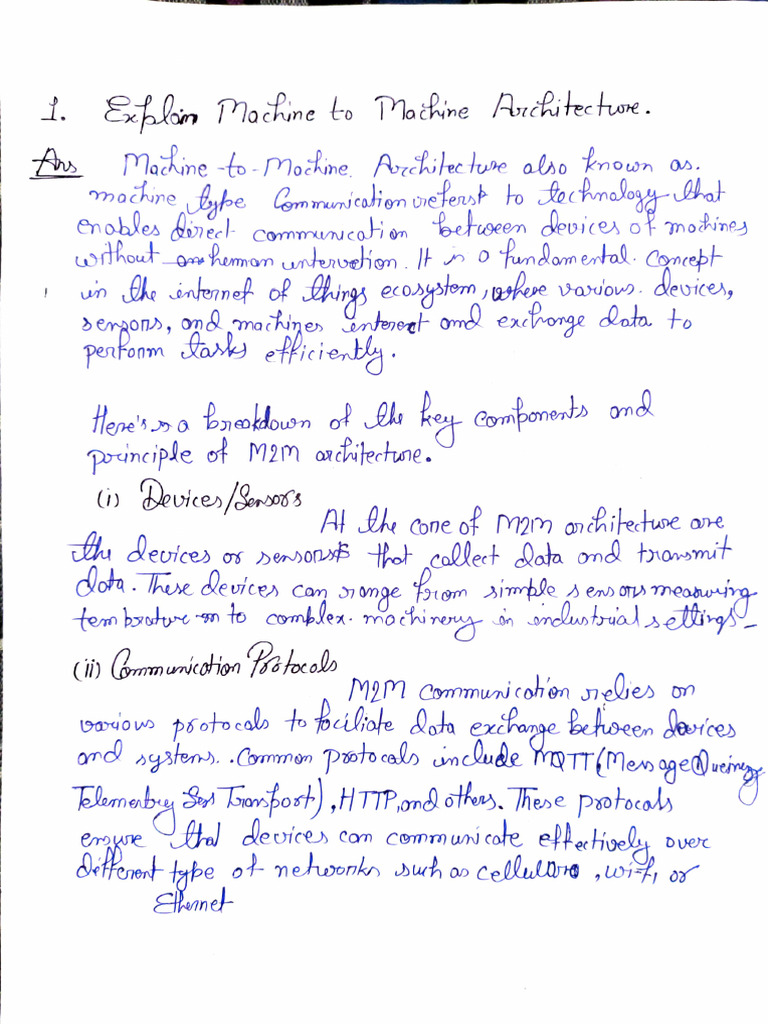 1. Explain Machine to Machine Architecture.
Ans Machine-to-Machine. Architecture also known as.
machine type Communication refers to technology that
enables direct communication between devices of machines
without human untervetion. It is a fundamental concept
in the internet of things ecosystem, where various. devices,
sensors, and machines interect and exchange data to
perform tasks efficiently.
Here's is a breakdown of the key components and
principle of M2M architecture.
(i) Devices/Sensors
At the core of M2M architecture are
the devices or sensors that collect data and transmit
data. These devices can range from simple sensors measuring
tembrature to complex. machinery in industrial settings-
(ii) Communication Protocals
M2M communication relies on
various protocals to faciliate data exchange between devices
and systems. .Common protocals include MQTT (Message Queineg
Telementry Transport), HTTP, and others. These protocals
ensure that devices can communicate effectively over
different type of networks such as cellular, wi-fi, or
Ethernet